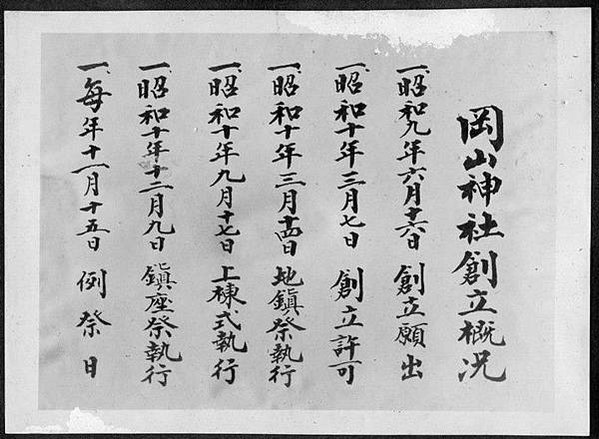 岡山神社創立概況
一、昭和九年六月十六日 創立願出
一、昭和十年三月七日 創立許可
一、昭和十年三月十四日 地鎮祭執行
一、昭和十年九月十七日 上棟式執行
一、昭和十年十二月九日 鎮座祭執行
一、毎年十一月十五日 例祭日